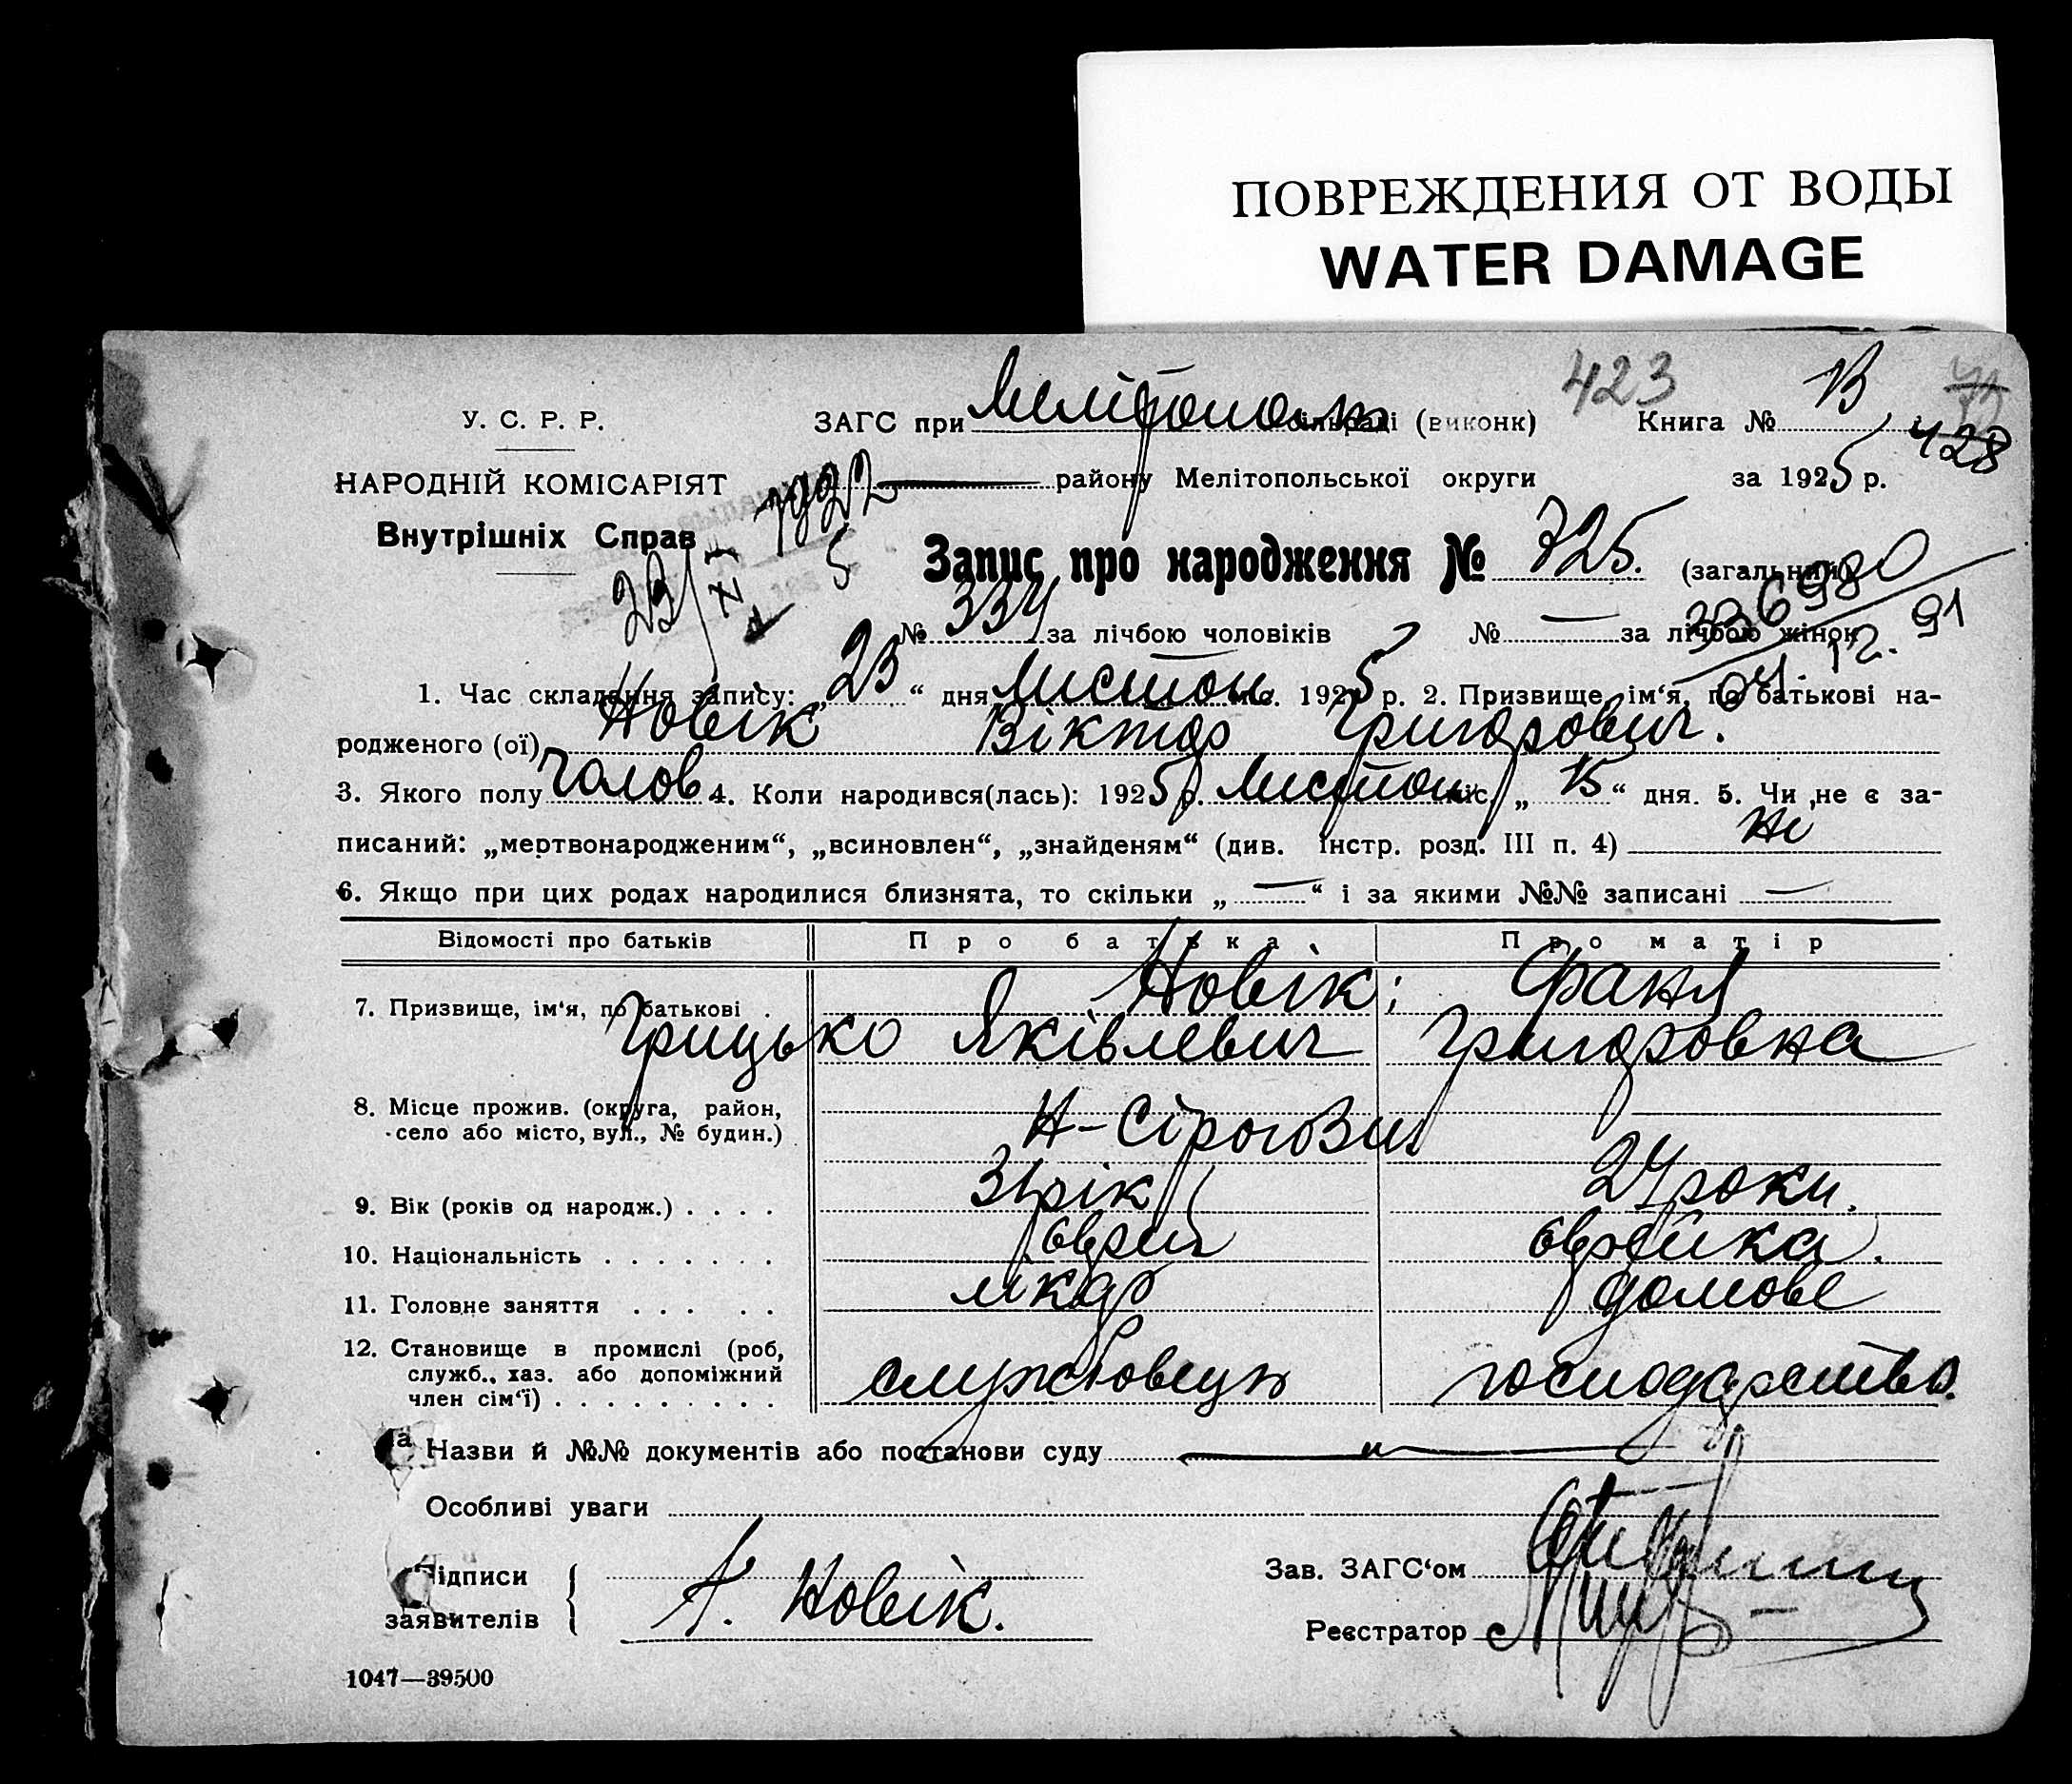 ПОВРЕЖДЕНИЯ ОТ ВОДЫ
WATER DAMAGE
423
У. С. Р. Р. ЗАГС при Мелітополь сільраді (виконк) Книга № 13
428
НАРОДНІЙ КОМІСАРІЯТ району Мелітопольської округи за 1925 р.
Внутрішніх Справ
Запис про народження № 725. (загальний)
336980
04. 12. 91
№ 334 за лічбою чоловіків № — за лічбою жінок
1. Час складання запису: „23“ дня Листоп. міс. 1925 р. 2. Призвище, ім‘я, по батькові на-
родженого (ої) Новік Віктор Григорович.
3. Якого полу Чолов 4. Коли народився(лась): 1925 р. Листоп міс. „15“ дня. 5. Чи не є за-
писаний: „мертвонародженим“, „всиновлен“, „знайденям“ (див. Інстр. розд. III п. 4) Ні
6. Якщо при цих родах народилися близнята, то скільки „—“ і за якими №№ записані —
Відомості про батьків Про батька Про матір
7. Призвище, ім‘я, по батькові . Новік; Фаня
Грицько Яківлевич Григоровна
8. Місце прожив. (округа, район,
село або місто, вул., № будин.) Н-Сірогози
9. Вік (років од народж.) . . . . 31 рік 24 роки.
10. Національність . . . . . . . єврей єврейка.
11. Головне заняття . . . . . лікар домове
12. Становище в промислі (роб,
служб., хаз. або допоміжний
член сім‘ї) . . . . . . . . . службовець господарство.
Назви й №№ документів або постанови суду
Особливі уваги
Підписи
заявителів Новік.
Зав. ЗАГС‘ом
Реєстратор
1047—39500